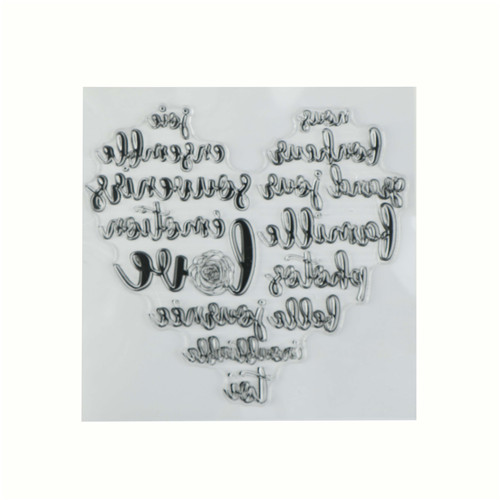 joie
nous
ensemble
bonheur
souvenirs
grand jour
émotion
famille
love
photos
belle journée
inoubliable
toi